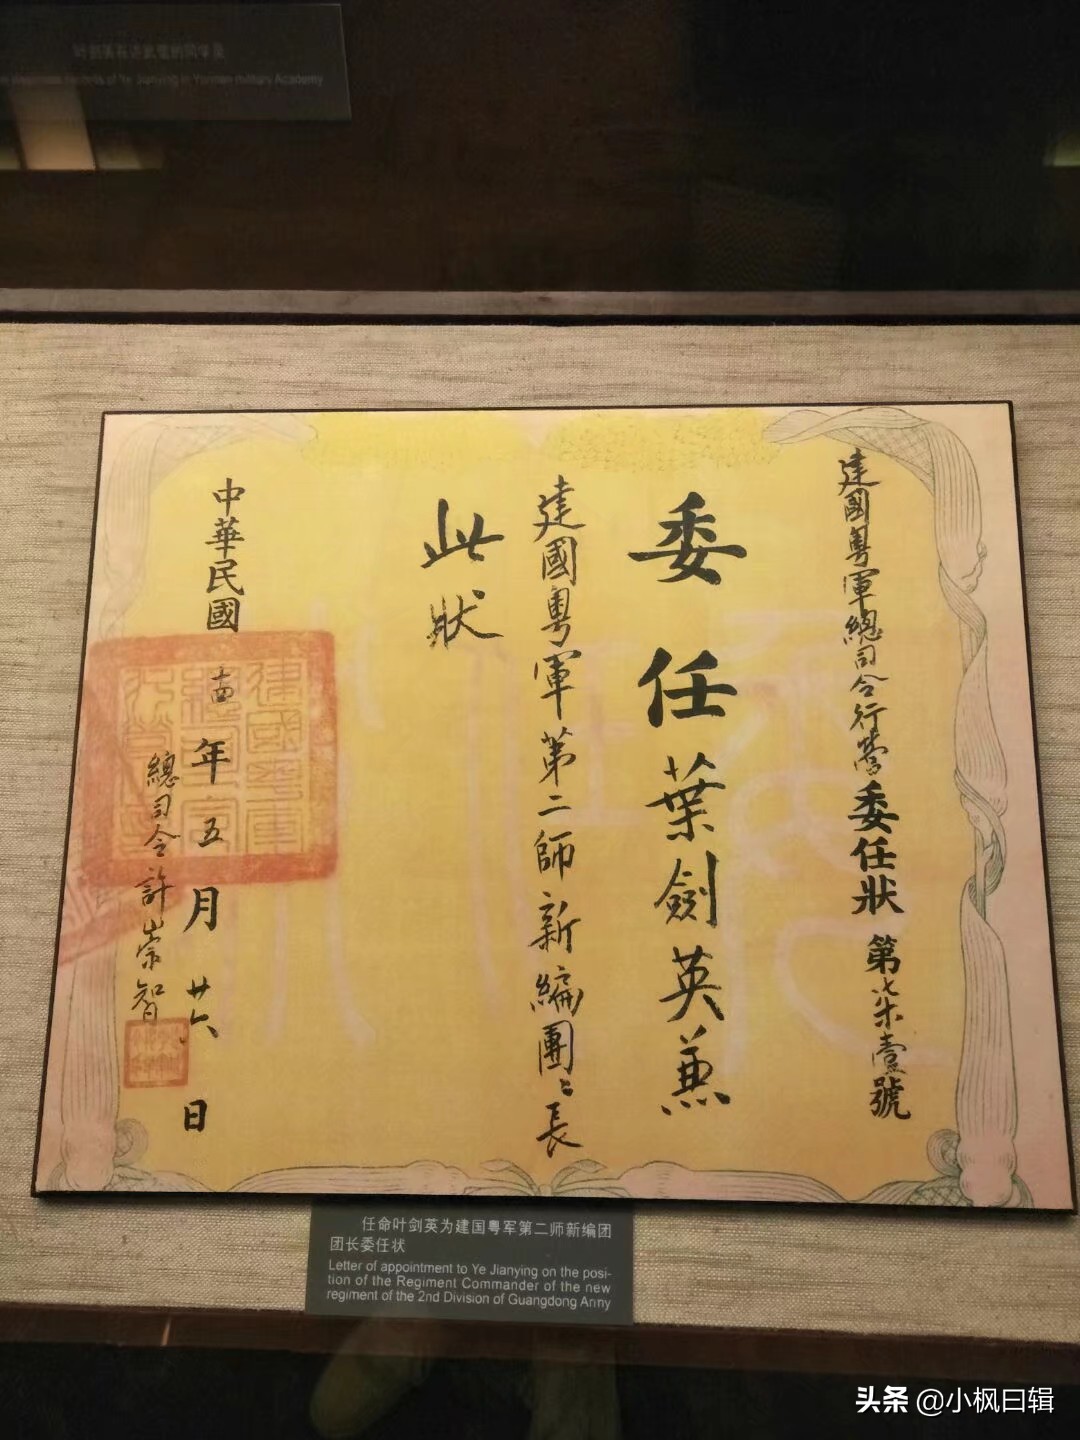 叶剑英在讲武堂的同学录
Records of Ye Jianying in Yunnan Military Academy
建國粵軍總司令行營委任狀 第柒壹號
委任葉劍英兼
建國粵軍第二師新編團〻長
此狀
中華民國 十四 年 五 月 廿六 日
總司令許崇智
任命叶剑英为建国粤军第二师新编团
团长委任状
Letter of appointment to Ye Jianying on the posi-
tion of the Regiment Commander of the new
regiment of the 2nd Division of Guangdong Army
头条 @小枫曰辑